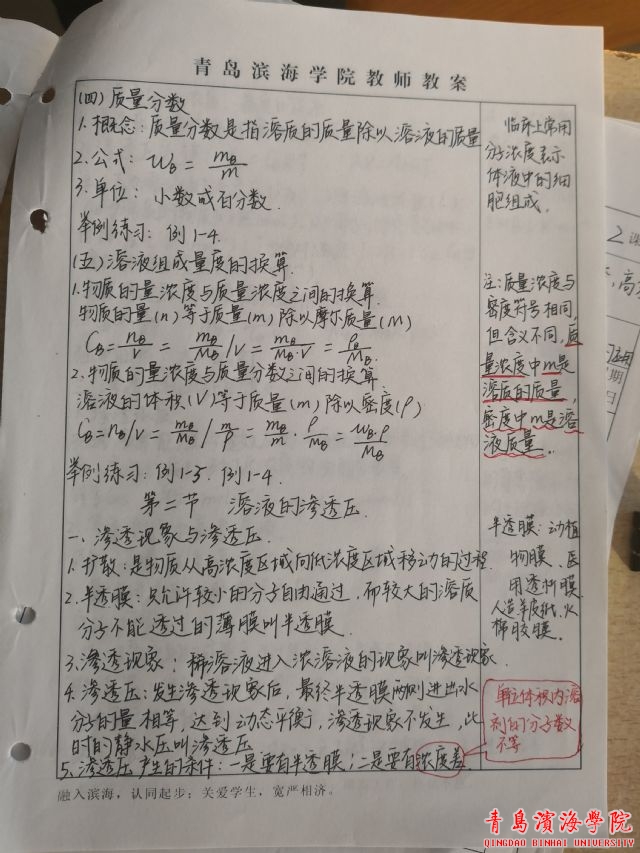 青岛滨海学院教师教案
(四)质量分数
1.概念:质量分数是指溶质的质量除以溶液的质量
2.公式: ω_B = m_B/m
3.单位: 小数或百分数.
举例练习: 例1-4.
(五)溶液组成量度的换算.
1.物质的量浓度与质量浓度之间的换算.
物质的量(n)等于质量(m)除以摩尔质量(M)
C_B = n_B/V = m_B/M_B /V = m_B/M_B·V = ρ_B/M_B
2.物质的量浓度与质量分数之间的换算
溶液的体积(V)等于质量(m)除以密度(ρ)
C_B = n_B/V = m_B/M_B / m/ρ = m_B/m · ρ/M_B = ω_B·ρ/M_B
举例练习: 例1-5. 例1-4.
第二节 溶液的渗透压.
一、渗透现象与渗透压.
1.扩散:是物质从高浓度区域向低浓度区域移动的过程.
2.半透膜:只允许较小的分子自由通过,而较大的溶质
分子不能透过的薄膜叫半透膜.
3.渗透现象:稀溶液进入浓溶液的现象叫渗透现象.
4.渗透压:发生渗透现象后,最终半透膜两侧进出水
分子的量相等,达到动态平衡,渗透现象不发生,此
时的静水压叫渗透压
5.渗透压产生的条件:一是要有半透膜;二是要有浓度差.
临床上常用
分子浓度表示
体液中的细
胞组成.
注:质量浓度与
密度符号相同,
但含义不同,质
量浓度中m是
溶质的质量,
密度中m是溶
液质量.
半透膜:动植
物膜、医
用透析膜
人造羊皮纸、火
棉胶膜.
单位体积内溶
剂的分子数
不等
融入滨海,认同起步;关爱学生,宽严相济。
2 课
,高
期
日
青島濱海學院
QINGDAO BINHAI UNIVERSITY